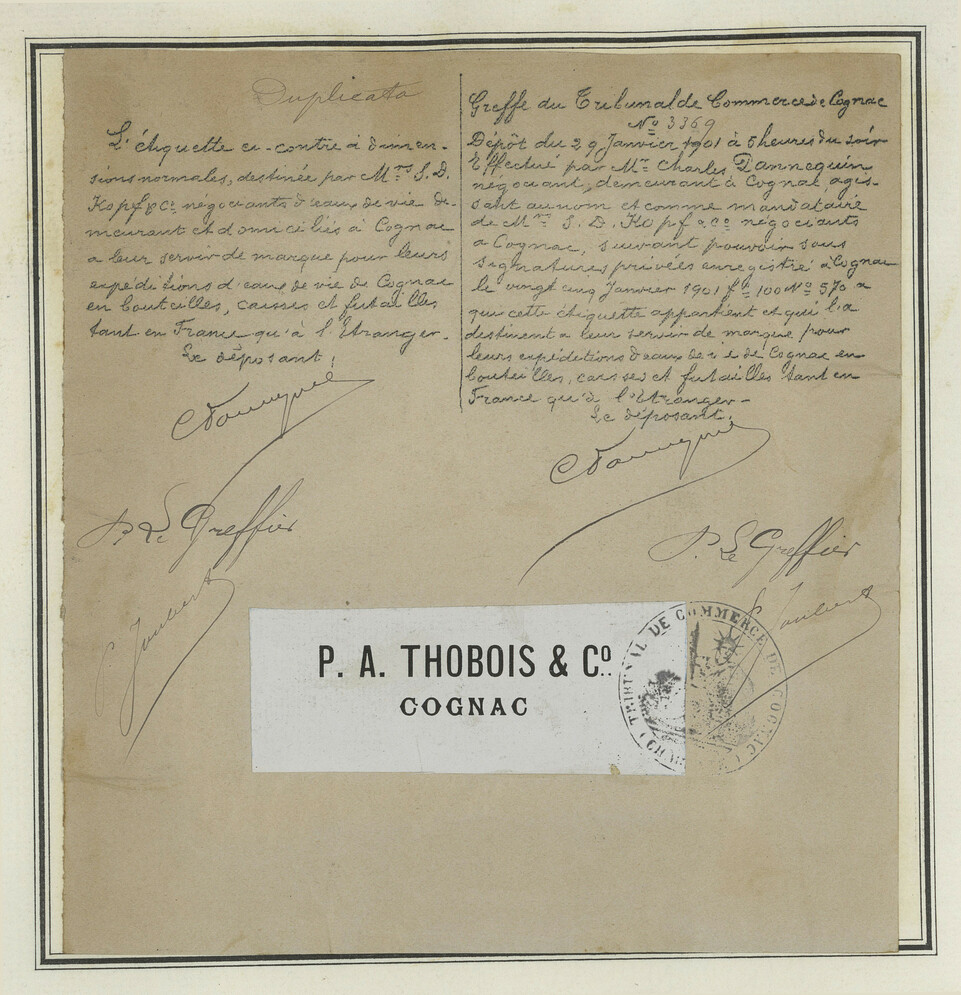 Duplicata
L'étiquette ci-contre à dimen-
sions normales, destinée par Mrs S. D.
Kopf & Co négociants d'eaux de vie de-
meurant et domiciliés à Cognac
a leur servir de marque pour leurs
expéditions d'eaux de vie de Cognac
en bouteilles, caisses et futailles
tant en France qu'à l'Etranger.
Le déposant,
P. Le Greffier
Joubert
Greffe du Tribunal de Commerce de Cognac
No 3369
Dépôt du 29 Janvier 1901 à 5 heures du soir
Effectué par Mr Charles Dannequin
négociant, demeurant à Cognac, agis-
sant au nom et comme mandataire
de Mrs S. D. Kopf & Co négociants
a Cognac, suivant pouvoir sous
signatures privées enregistré à Cognac
le vingt cinq Janvier 1901 fo 100 No 570 a
qui cette étiquette appartient et qui l'a
destinent a leur servir de marque pour
leurs expéditions d'eaux de vie de Cognac en
bouteilles, caisses et futailles tant en
France qu'à l'Etranger-
Le déposant,
P. Le Greffier
Joubert
P. A. THOBOIS & Co.
COGNAC
TRIBUNAL DE COMMERCE DE COGNAC